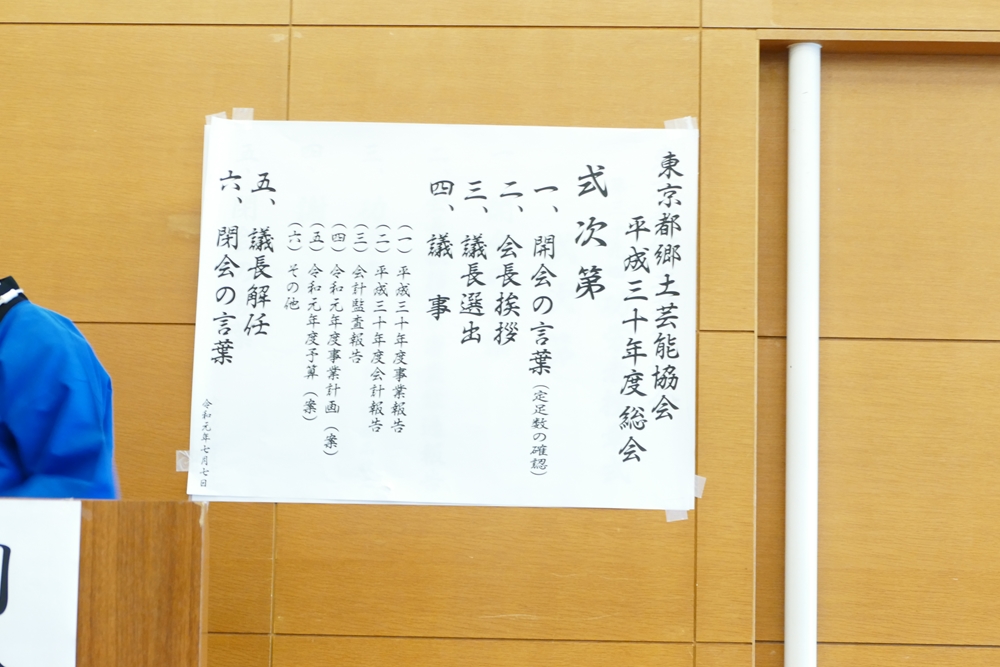 東京都郷土芸能協会
平成三十年度総会
式次第
一、開会の言葉(定足数の確認)
二、会長挨拶
三、議長選出
四、議事
(一)平成三十年度事業報告
(二)平成三十年度会計報告
(三)会計監査報告
(四)令和元年度事業計画(案)
(五)令和元年度予算(案)
(六)その他
五、議長解任
六、閉会の言葉
令和元年七月七日